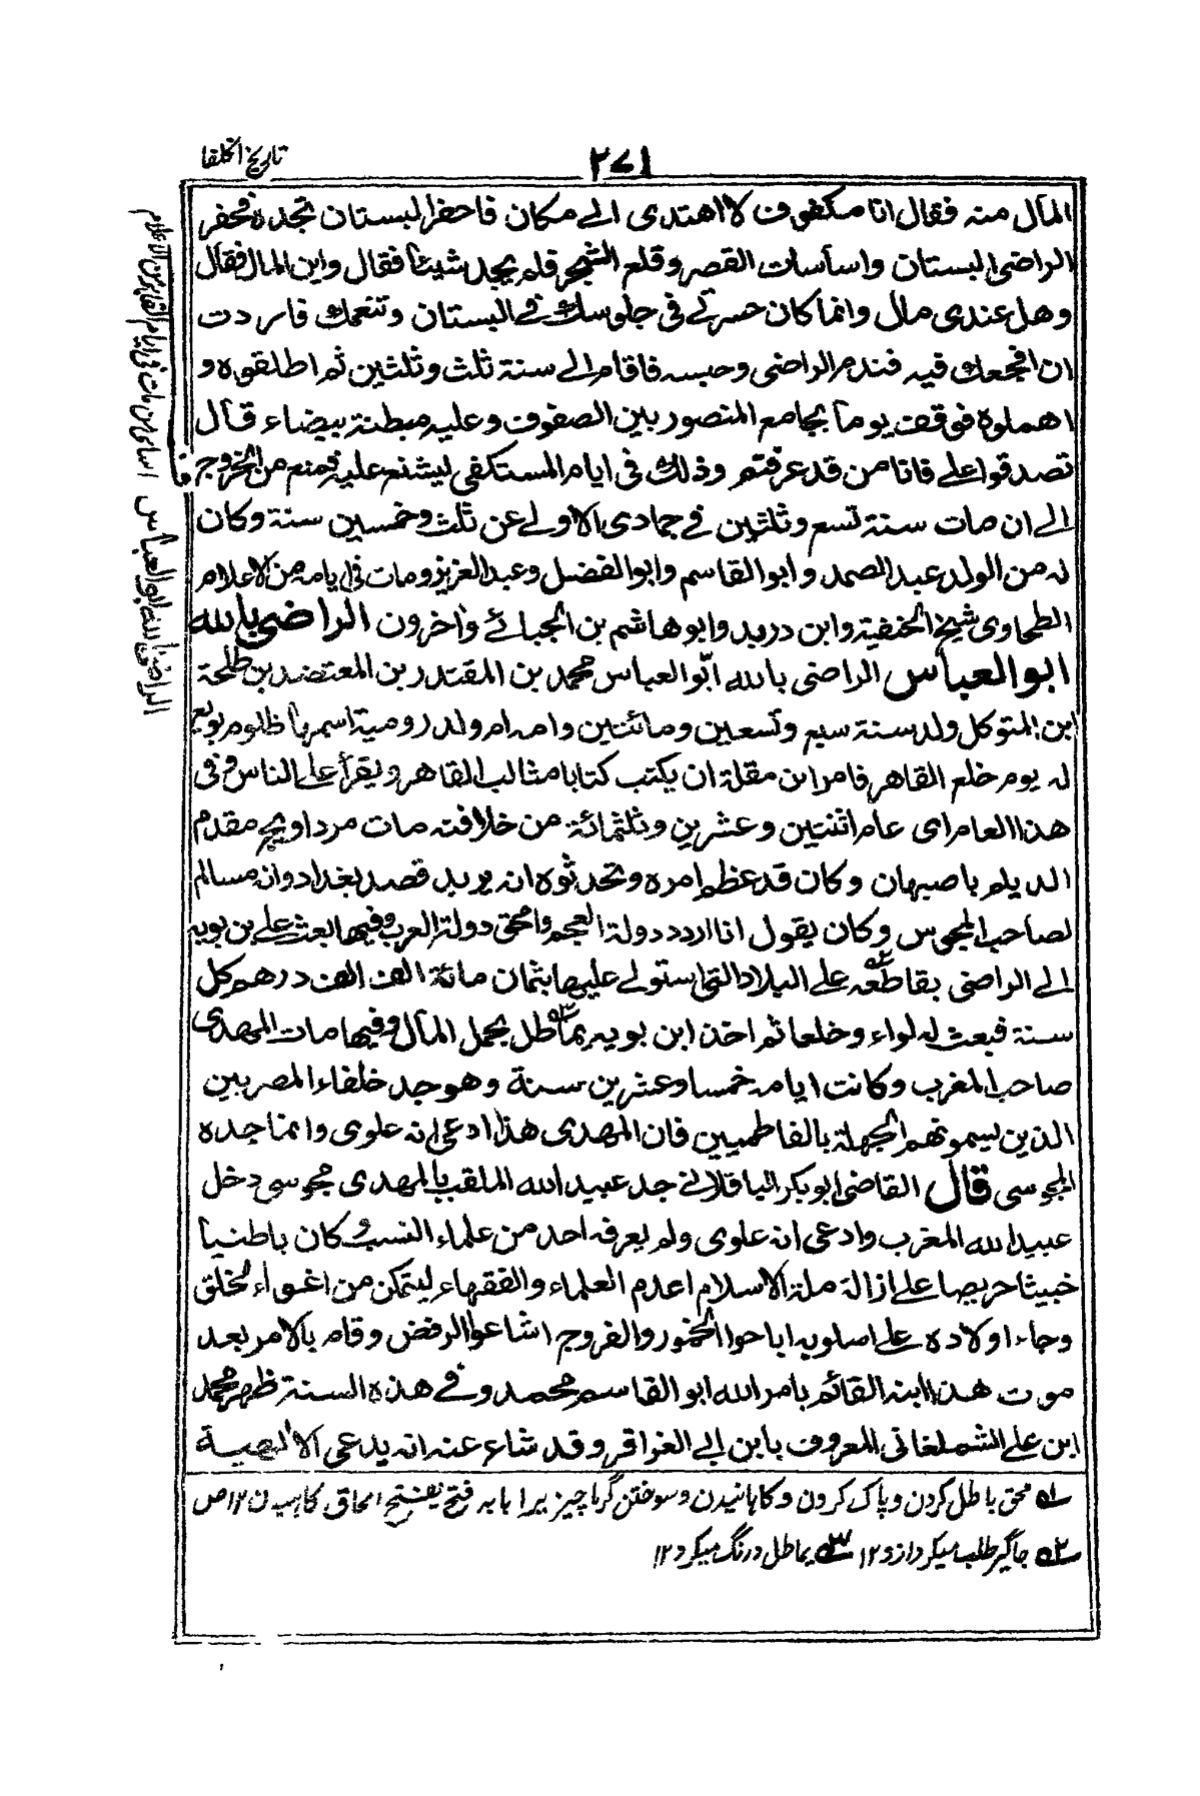 تاريخ الخلفا
٢٧١
المال منه فقال انا مكفوف لا اهتدى الى مكان فاحفر البستان تجده فحفر
الراضى البستان واساسات القصر وقلع الشجر فلم يجد شيئا فقال واين المال فقال
وهل عندى مال وانما كان حسرتى فى جلوسك فى البستان وتنعمك فاردت
ان افجعك فيه فندم الراضى وحبسه فاقام الى سنة ثلث وثلثين ثم اطلقوه و
اهملوه فوقف يوما بجامع المنصور بين الصفوف وعليه مبطنة بيضاء قال
تصدقوا على فانا من قد عرفتم وذلك فى ايام المستكفى ليشنع عليه فمنع من الخروج
الى ان مات سنة تسع وثلثين فى جمادى الاولى عن ثلث وخمسين سنة وكان
له من الولد عبد الصمد وابو القاسم وابو الفضل وعبد العزيز ومات فى ايامه من الاعلام
الطحاوى شيخ الحنفية وابن دريد وابو هاشم بن الجبائى واٰخرون الراضى بالله
ابو العباس الراضى بالله ابو العباس محمد بن المقتدر بن المعتضد بن طلحة
ابن المتوكل ولد سنة سبع وتسعين ومائتين وامه ام ولد رومية اسمها ظلوم بويع
له يوم خلع القاهر فامر ابن مقلة ان يكتب كتابا مثالب القاهر ويقرأ على الناس وفى
هذا العام اى عام اثنتين وعشرين وثلثمائة من خلافته مات مرداويج مقدم
الديلم باصبهان وكان قد عظم امره وتحدثوه انه يريد قصد بغداد وانه مسالم
لصاحب المجوس وكان يقول انا اردد دولة العجم وامحق دولة العرب وفيها بعث على بن بويه
الى الراضى يقاطعه على البلاد التى استولى عليها بثمان مائة الف الف درهم كل
سنة فبعث له لواء وخلعا ثم اخذ ابن بويه يماطل بحمل المال وفيها مات المهدى
صاحب المغرب وكانت ايامه خمسا وعشرين سنة وهو جد خلفاء المصريين
الذين يسمونهم الجهلة بالفاطميين فان المهدى هذا ادعى انه علوى وانما جده
المجوسى قال القاضى ابو بكر الباقلانى جد عبيد الله الملقب بالمهدى مجوسى دخل
عبيد الله المغرب وادعى انه علوى ولم يعرفه احد من علماء النسب وكان باطنيا
خبيثا حريصا على ازالة ملة الاسلام اعدم العلماء والفقهاء ليتمكن من اغواء الخلق
وجاء اولاده على اسلوبه اباحوا الخمور والفروج اشاعوا الرفض وقام بالامر بعد
موت هذا ابنه القائم بامر الله ابو القاسم محمد وفى هذه السنة ظهر محمد
ابن على الشمغلغانى المعروف بابن ابى الغواقر وقد شاع عنه انه يدعى الالهية
له محق باطل كردن و پاک کرون و کاہانیدن و سوختن گرما چیز یرا بابہ فتح یفتح ١٢ ص
٢ه جاگیر طلب میکرد ازو ١٢ ٣ه یماطل درنگ میکرد ١٢
اسامى من مات فى ايام القاہر من الاعلام
الراضى بالله ابو العباس